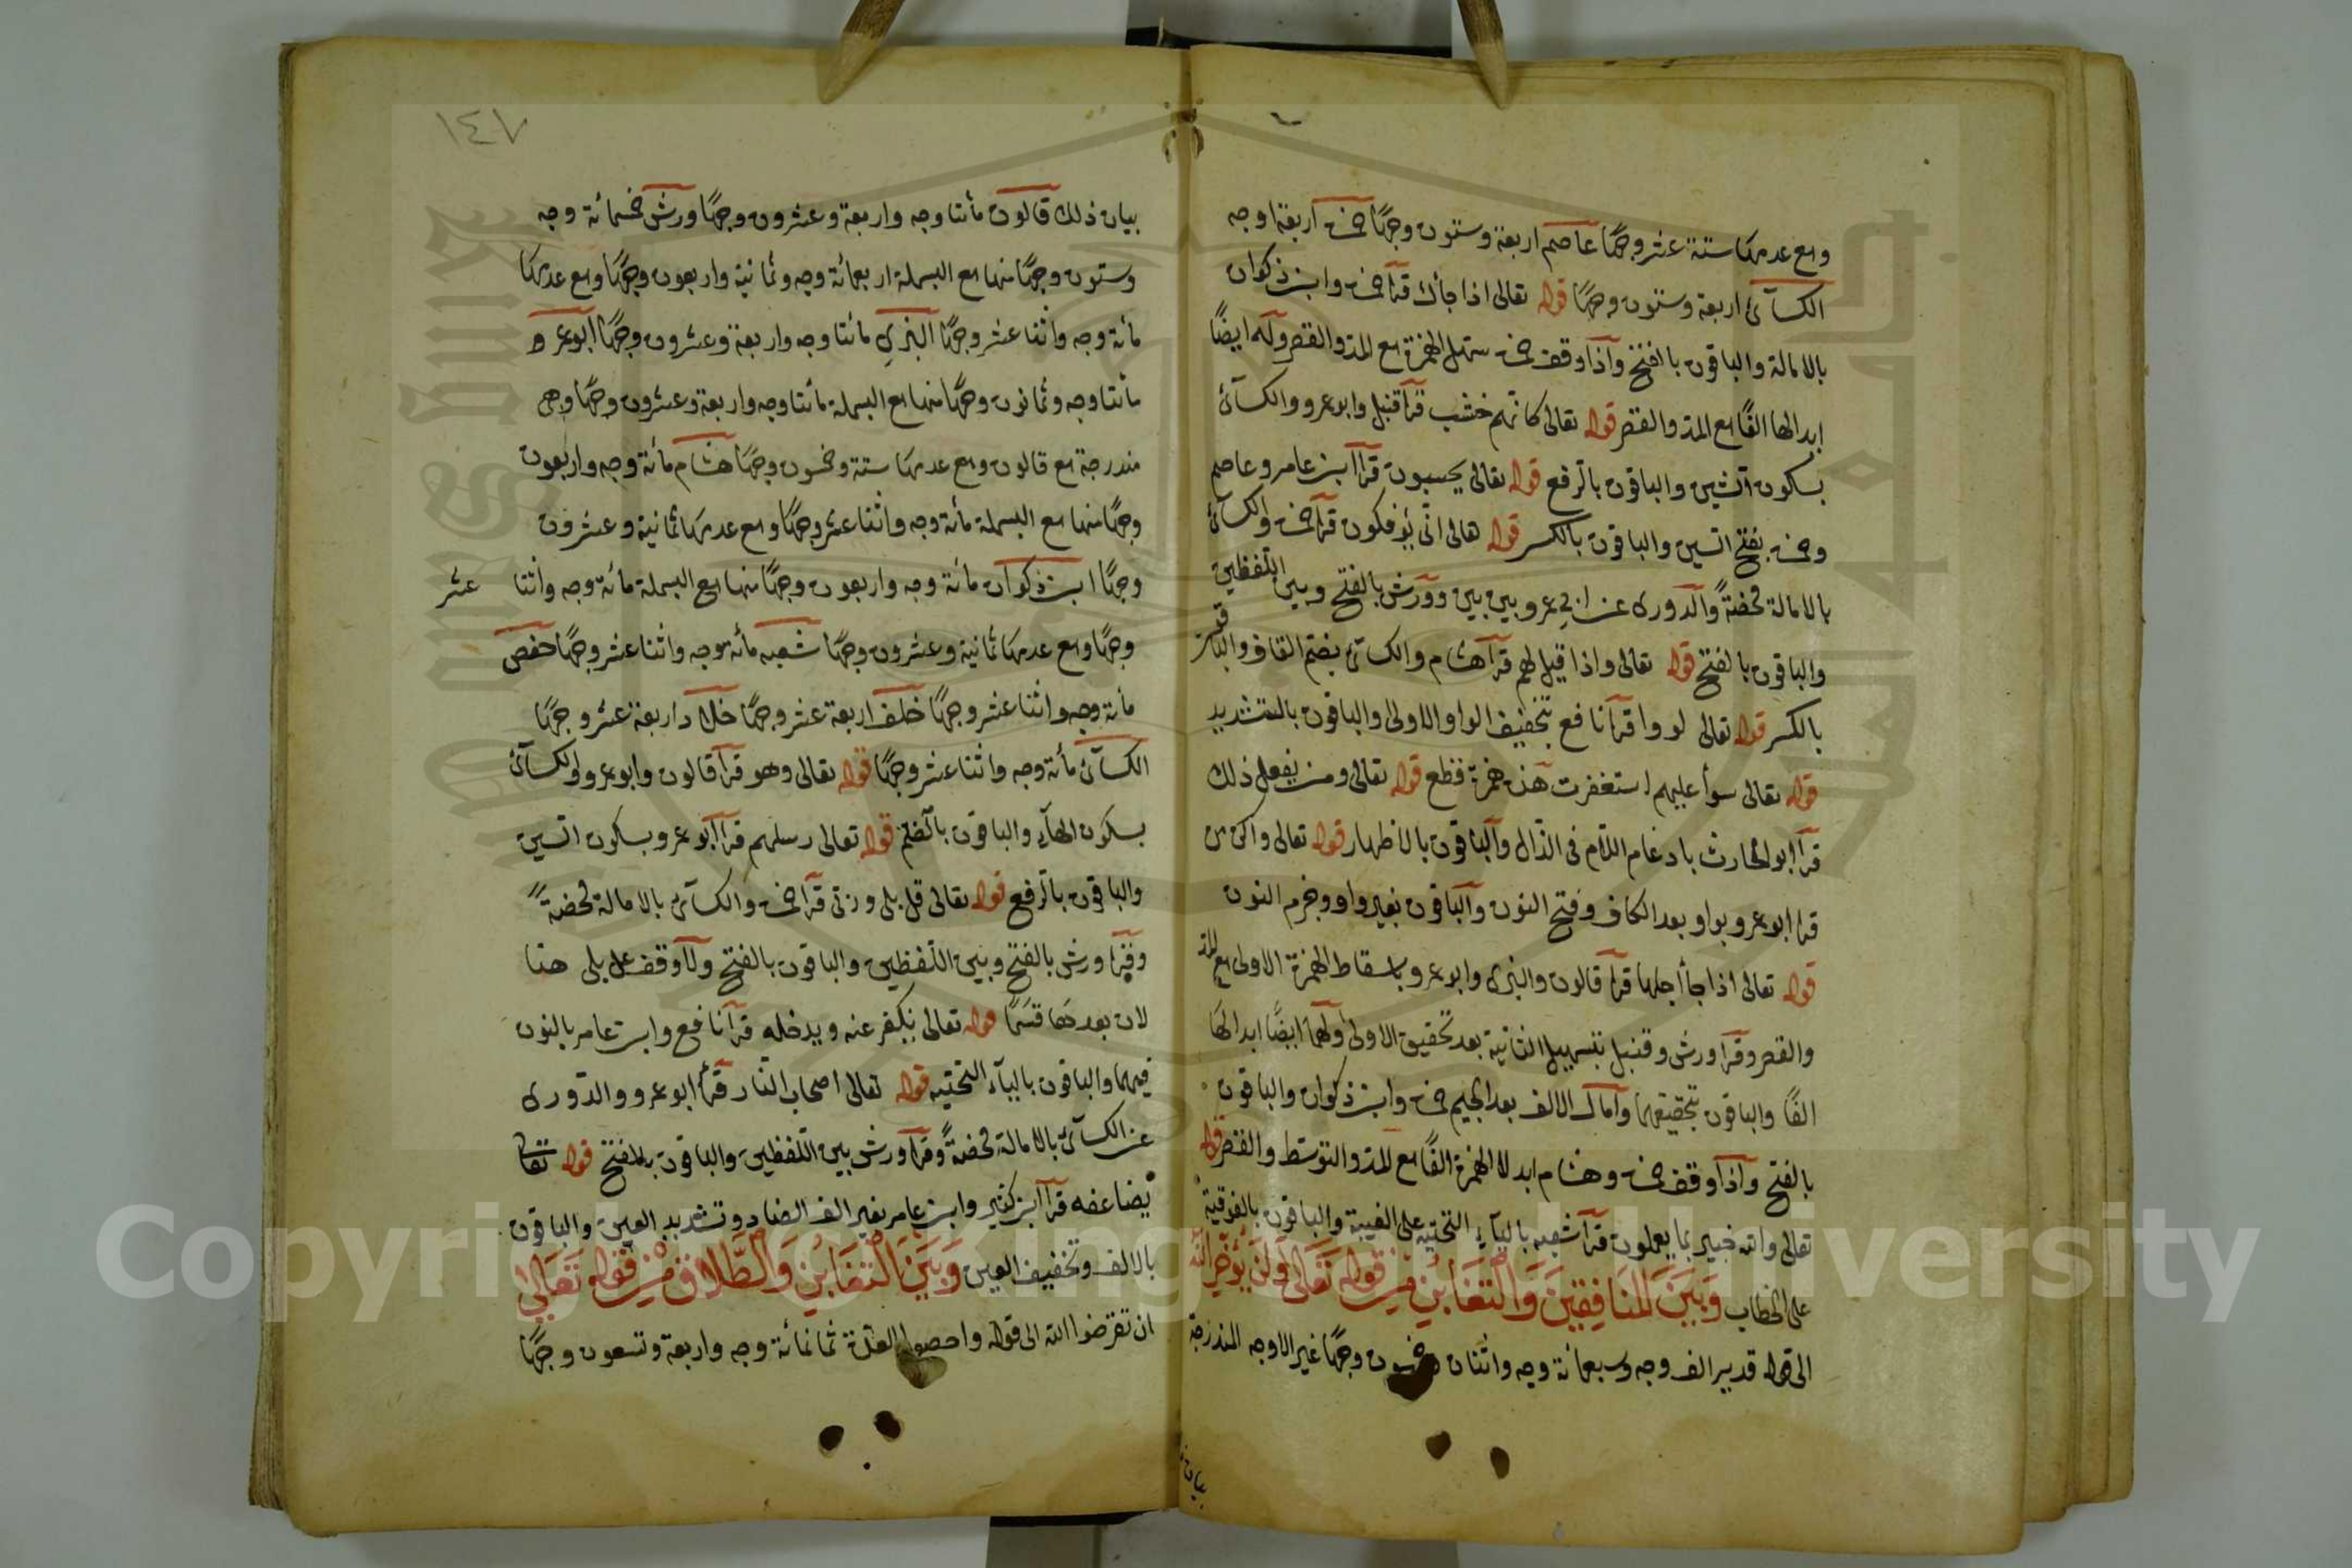 ومع عدمها ستة عشر وجهًا عاصم اربعة وستون وجهًا حمزة اربعة اوجه
الكسآئى اربعة وستون وجهًا قوله تعالى اذا جأك قرآ حمزة وابن ذكوان
بالامالة والباقون بالفتح وآذا وقف حمزة سهل الهمزة مع المد والقصر وله ايضًا
ابدالها الفًا مع المد والقصر قوله تعالى كانهم خشب قرآ قنبل وابوعمرو والكسآئى
بسكون الشين والباقون بالرفع قوله تعالى يحسبون قرآ ابن عامر وعاصم
وحمزة بفتح السين والباقون بالكسر قوله تعالى انّى يؤفكون قرآ حمزة والكسآئى
بالامالة محضةً والدورى عن ابى عمرو بين بين وورش بالفتح وبين اللفظين
والباقون بالفتح قوله تعالى واذا قيل لهم قرآ هشام والكسآئى بضم القاف والباقون
بالكسر قوله تعالى لووا قرآ نافع بتخفيف الواو الاولى والباقون بالتشديد
قوله تعالى سوأ عليهم استغفرت هذه همزة قطع قوله تعالى ومن يفعل ذلك
قرآ ابوالحارث بادغام اللام فى الذال والباقون بالاظهار قوله تعالى واكن من
قرا ابوعمرو بواو بعد الكاف وفتح النون والباقون بغير واو وجزم النون
قوله تعالى اذا جأ اجلها قرآ قالون والبزى وابوعمرو باسقاط الهمزة الاولى مع المد
والقصر وقرآ ورش وقنبل بتسهيل الثانية بعد تحقيق الاولى ولهما ايضًا ابدالها
الفًا والباقون بتحقيقهما وآمال الالف بعد الجيم حمزة وابن ذكوان والباقون
بالفتح وآذا وقف حمزة وهشام ابدلا الهمزة الفًا مع المد والتوسط والقصر قوله
تعالى والله خبير بما يعملون قرآ شعبه باليآء التحتيه على الغيبة والباقون بالفوقية
على الخطاب وَبَيْنَ المنَافِقِينَ وَالتَّغَابُنِ مِنْ قولِهِ تَعَالَى وَلَنْ يُؤَخِّرَ اللَّه
الى قوله قدير الف وجه وسبعمائة وجه واثنان وخمسون وجهًا غير الاوجه المندرجة
بيان
١٤٧
بيان ذلك قالون مأتا وجه واربعة وعشرون وجهًا ورش خمسمائة وجه
وستون وجهًا منها مع البسملة اربعمائة وجه وثمانية واربعون وجهًا ومع عدمها
مأئة وجه واثنا عشر وجهًا البزي مأتا وجه واربعة وعشرون وجهًا ابوعمرو
مأتا وجه وثمانون وجهًا منها مع البسملة مأتا وجه واربعة وعشرون وجهًا وهى
مندرجة مع قالون ومع عدمها ستة وخمسون وجهًا هشام مأئة وجه واربعون
وجهًا منها مع البسملة مأئة وجه واثنا عشر وجهًا ومع عدمها ثمانية وعشرون
وجهًا ابن ذكوان مائة وجه واربعون وجهًا منها مع البسملة مائة وجه واثنا عشر
وجهًا ومع عدمها ثمانية وعشرون وجهًا شعبه مأئة وجه واثنا عشر وجهًا حفص
مأئة وجه واثنا عشر وجهًا خلف اربعة عشر وجهًا خلاد اربعة عشر وجهًا
الكسآئى مأئة وجه واثنا عشر وجهًا قوله تعالى وهو قرآ قالون وابوعمرو والكسآئى
بسكون الهآء والباقون بالضم قوله تعالى رسلهم قرآ ابوعمرو بسكون السين
والباقون بالرفع قوله تعالى قل بلى وربى قرآ حمزة والكسآئى بالامالة محضةً
وقرآ ورش بالفتح وبين اللفظين والباقون بالفتح ولا وقف على بلى هنا
لان بعدها قسمًا قوله تعالى نكفر عنه ويدخله قرآ نافع وابن عامر بالنون
فيهما والباقون باليآء التحتيه قوله تعالى اصحاب النار قرأ ابوعمرو والدورى
عن الكسآئى بالامالة محضةً وقرآ ورش بين اللفظين والباقون بالفتح قوله تعالى
يضاعفه قرآ ابن كثير وابن عامر بغير الف الضاد وتشديد العين والباقون
بالالف وتخفيف العين وَبَيْنَ التَّغَابُنِ وَالطَّلَاقِ مِنْ قولِهِ تَعَالَى
ان تقرضوا الله الى قوله واحصوا العدة ثمانمائة وجه واربعة وتسعون وجهًا
Copyright © King Saud University